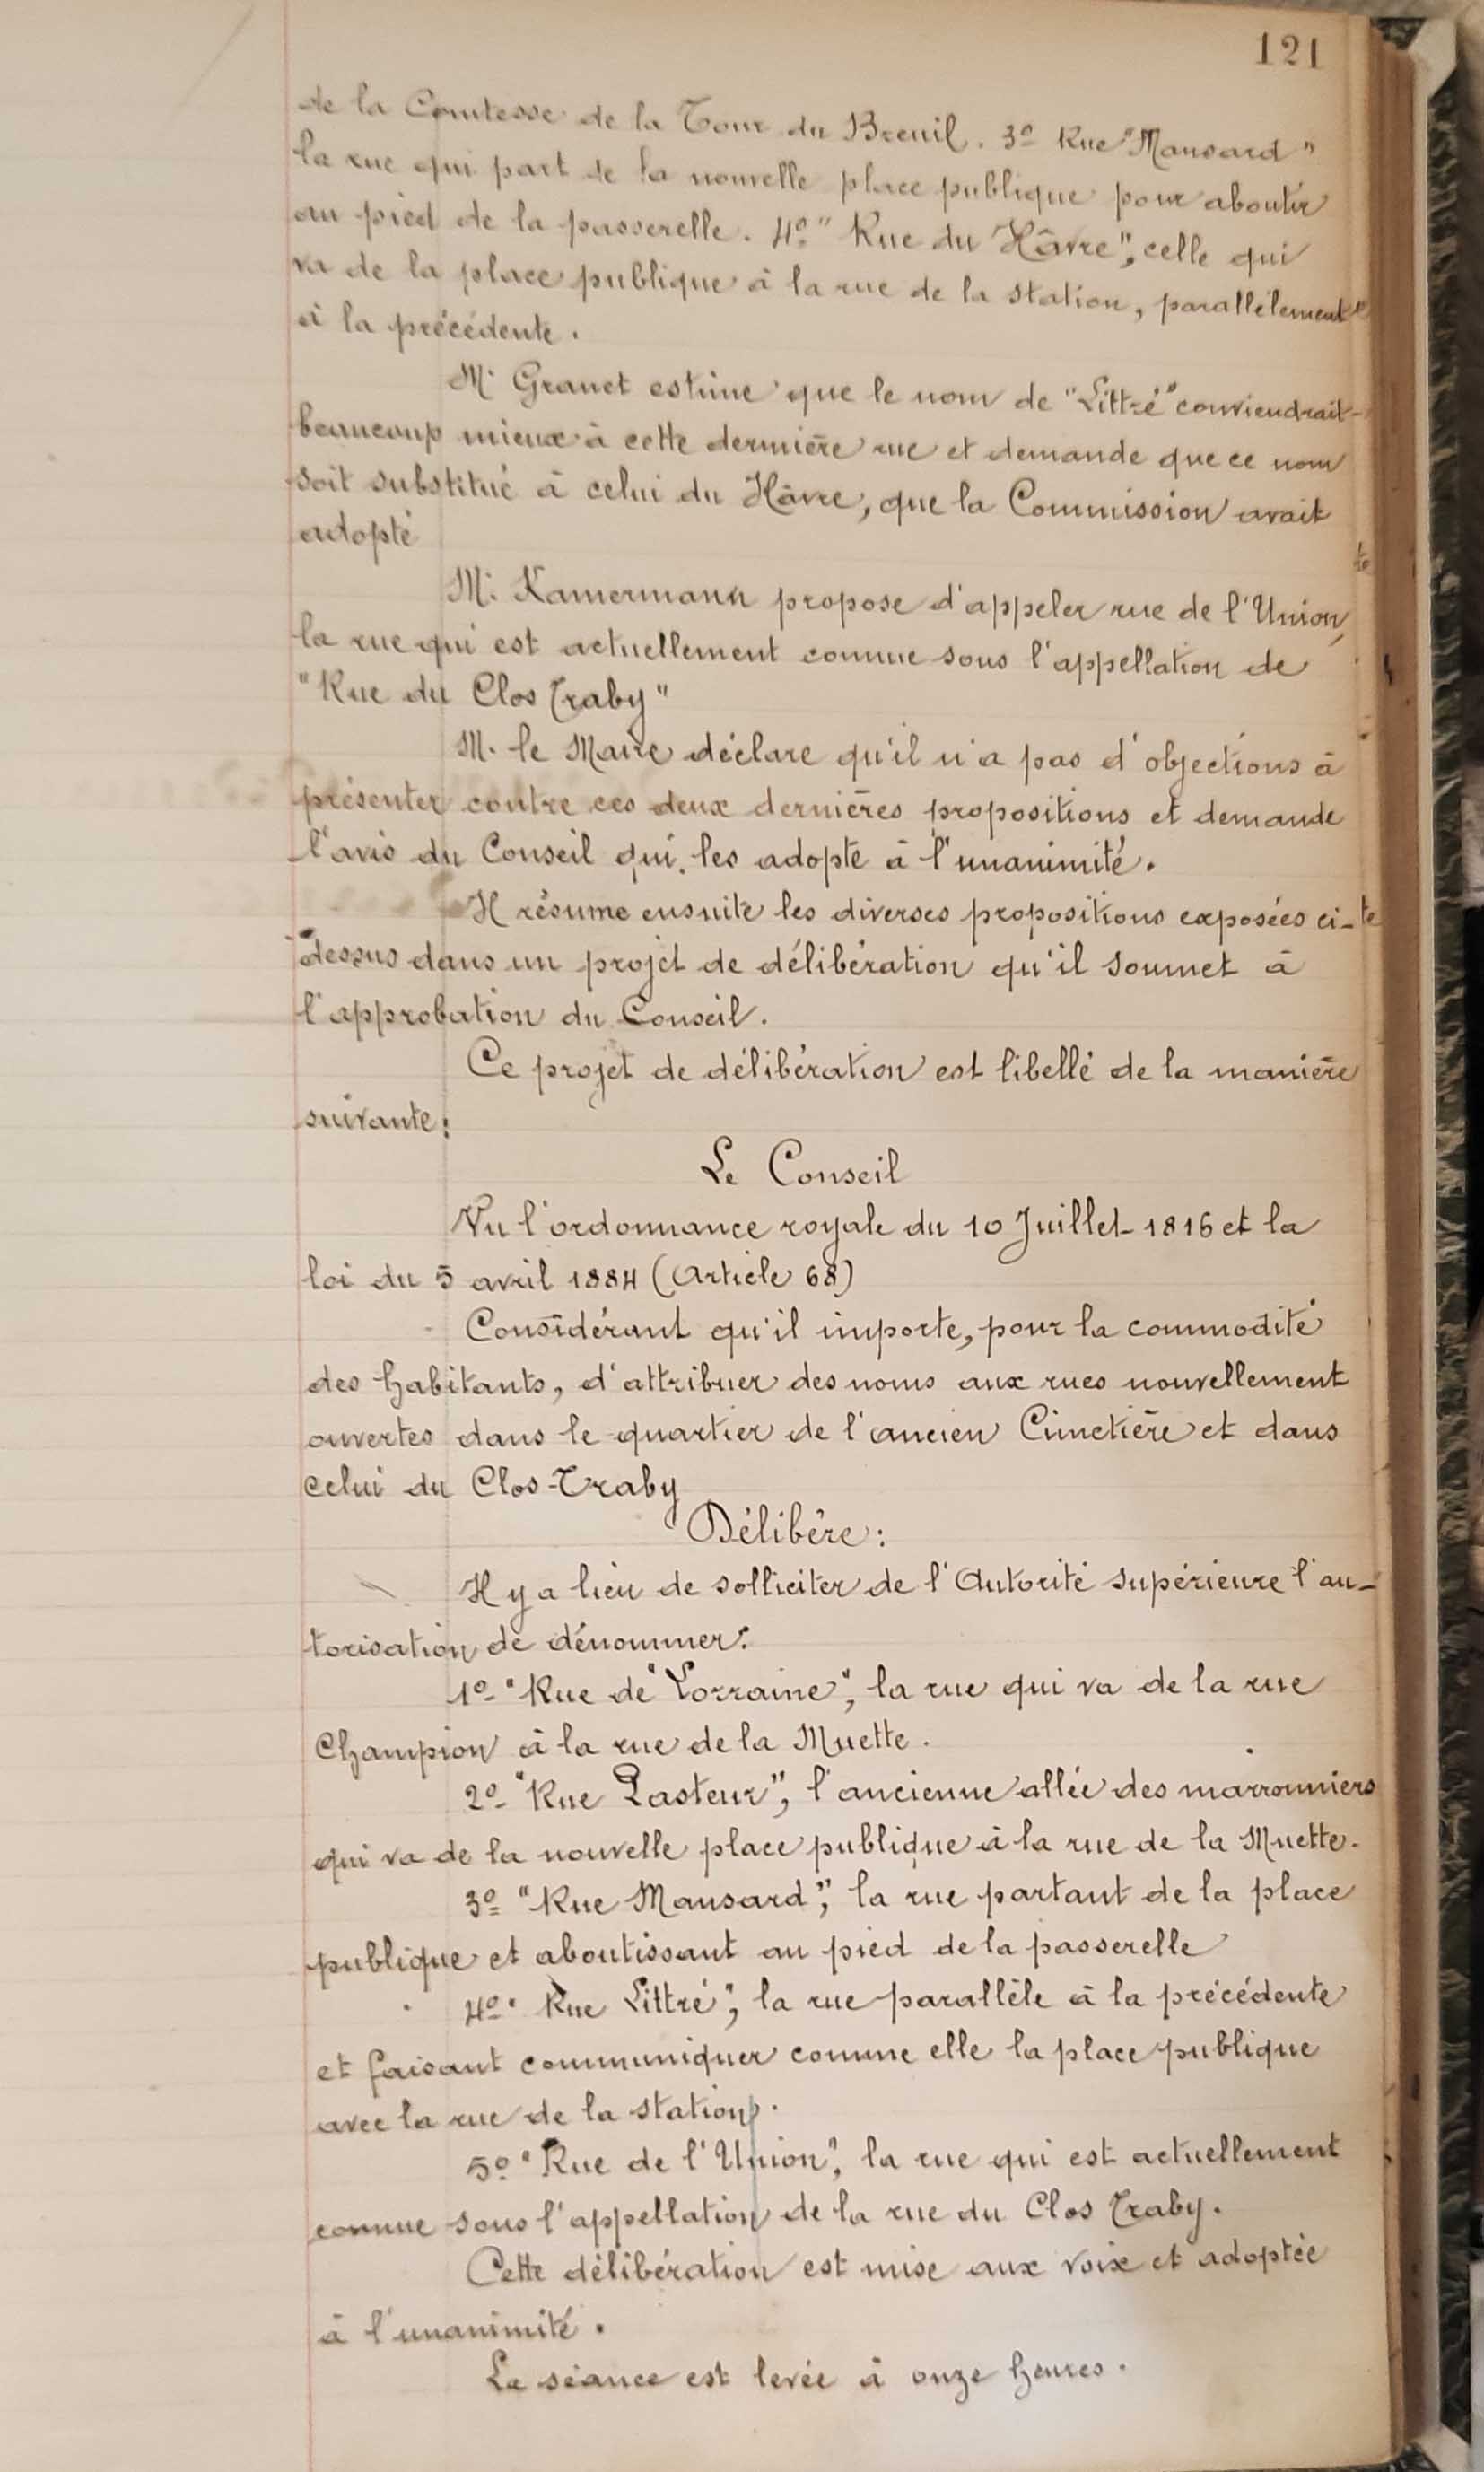 121
de la Comtesse de la Tour du Breuil. 3º Rue "Mansard"
la rue qui part de la nouvelle place publique pour aboutir
au pied de la passerelle. 4º " Rue du Hâvre", celle qui
va de la place publique à la rue de la station, parallèlement
à la précédente.
Mr Granet estime que le nom de "Littré" conviendrait
beaucoup mieux à cette dernière rue et demande que ce nom
soit substitué à celui du Hâvre, que la Commission avait
adopté
Mr Kamermann propose d'appeler rue de l'Union,
la rue qui est actuellement connue sous l'appellation de
"Rue du Clos Traby"
M. le Maire déclare qu'il n'a pas d'objections à
présenter contre ces deux dernières propositions et demande
l'avis du Conseil qui les adopte à l'unanimité.
Il résume ensuite les diverses propositions exposées ci-
dessus dans un projet de délibération qu'il soumet à
l'approbation du Conseil.
Ce projet de délibération est libellé de la manière
suivante:
Le Conseil
Vu l'ordonnance royale du 10 Juillet 1816 et la
loi du 5 avril 1884 (Article 68)
Considérant qu'il importe, pour la commodité
des habitants, d'attribuer des noms aux rues nouvellement
ouvertes dans le quartier de l'ancien Cimetière et dans
celui du Clos-Traby
Délibère:
Il y a lieu de solliciter de l'Autorité supérieure l'au-
torisation de dénommer:
1º "Rue de "Lorraine", la rue qui va de la rue
Champion à la rue de la Muette.
2º "Rue Pasteur", l'ancienne allée des marronniers
qui va de la nouvelle place publique à la rue de la Muette.
3º "Rue Mansard", la rue partant de la place
publique et aboutissant au pied de la passerelle
4º " Rue Littré", la rue parallèle à la précédente
et faisant communiquer comme elle la place publique
avec la rue de la station.
5º "Rue de l'Union", la rue qui est actuellement
connue sous l'appellation de la rue du Clos Traby.
Cette délibération est mise aux voix et adoptée
à l'unanimité.
La séance est levée à onze heures.